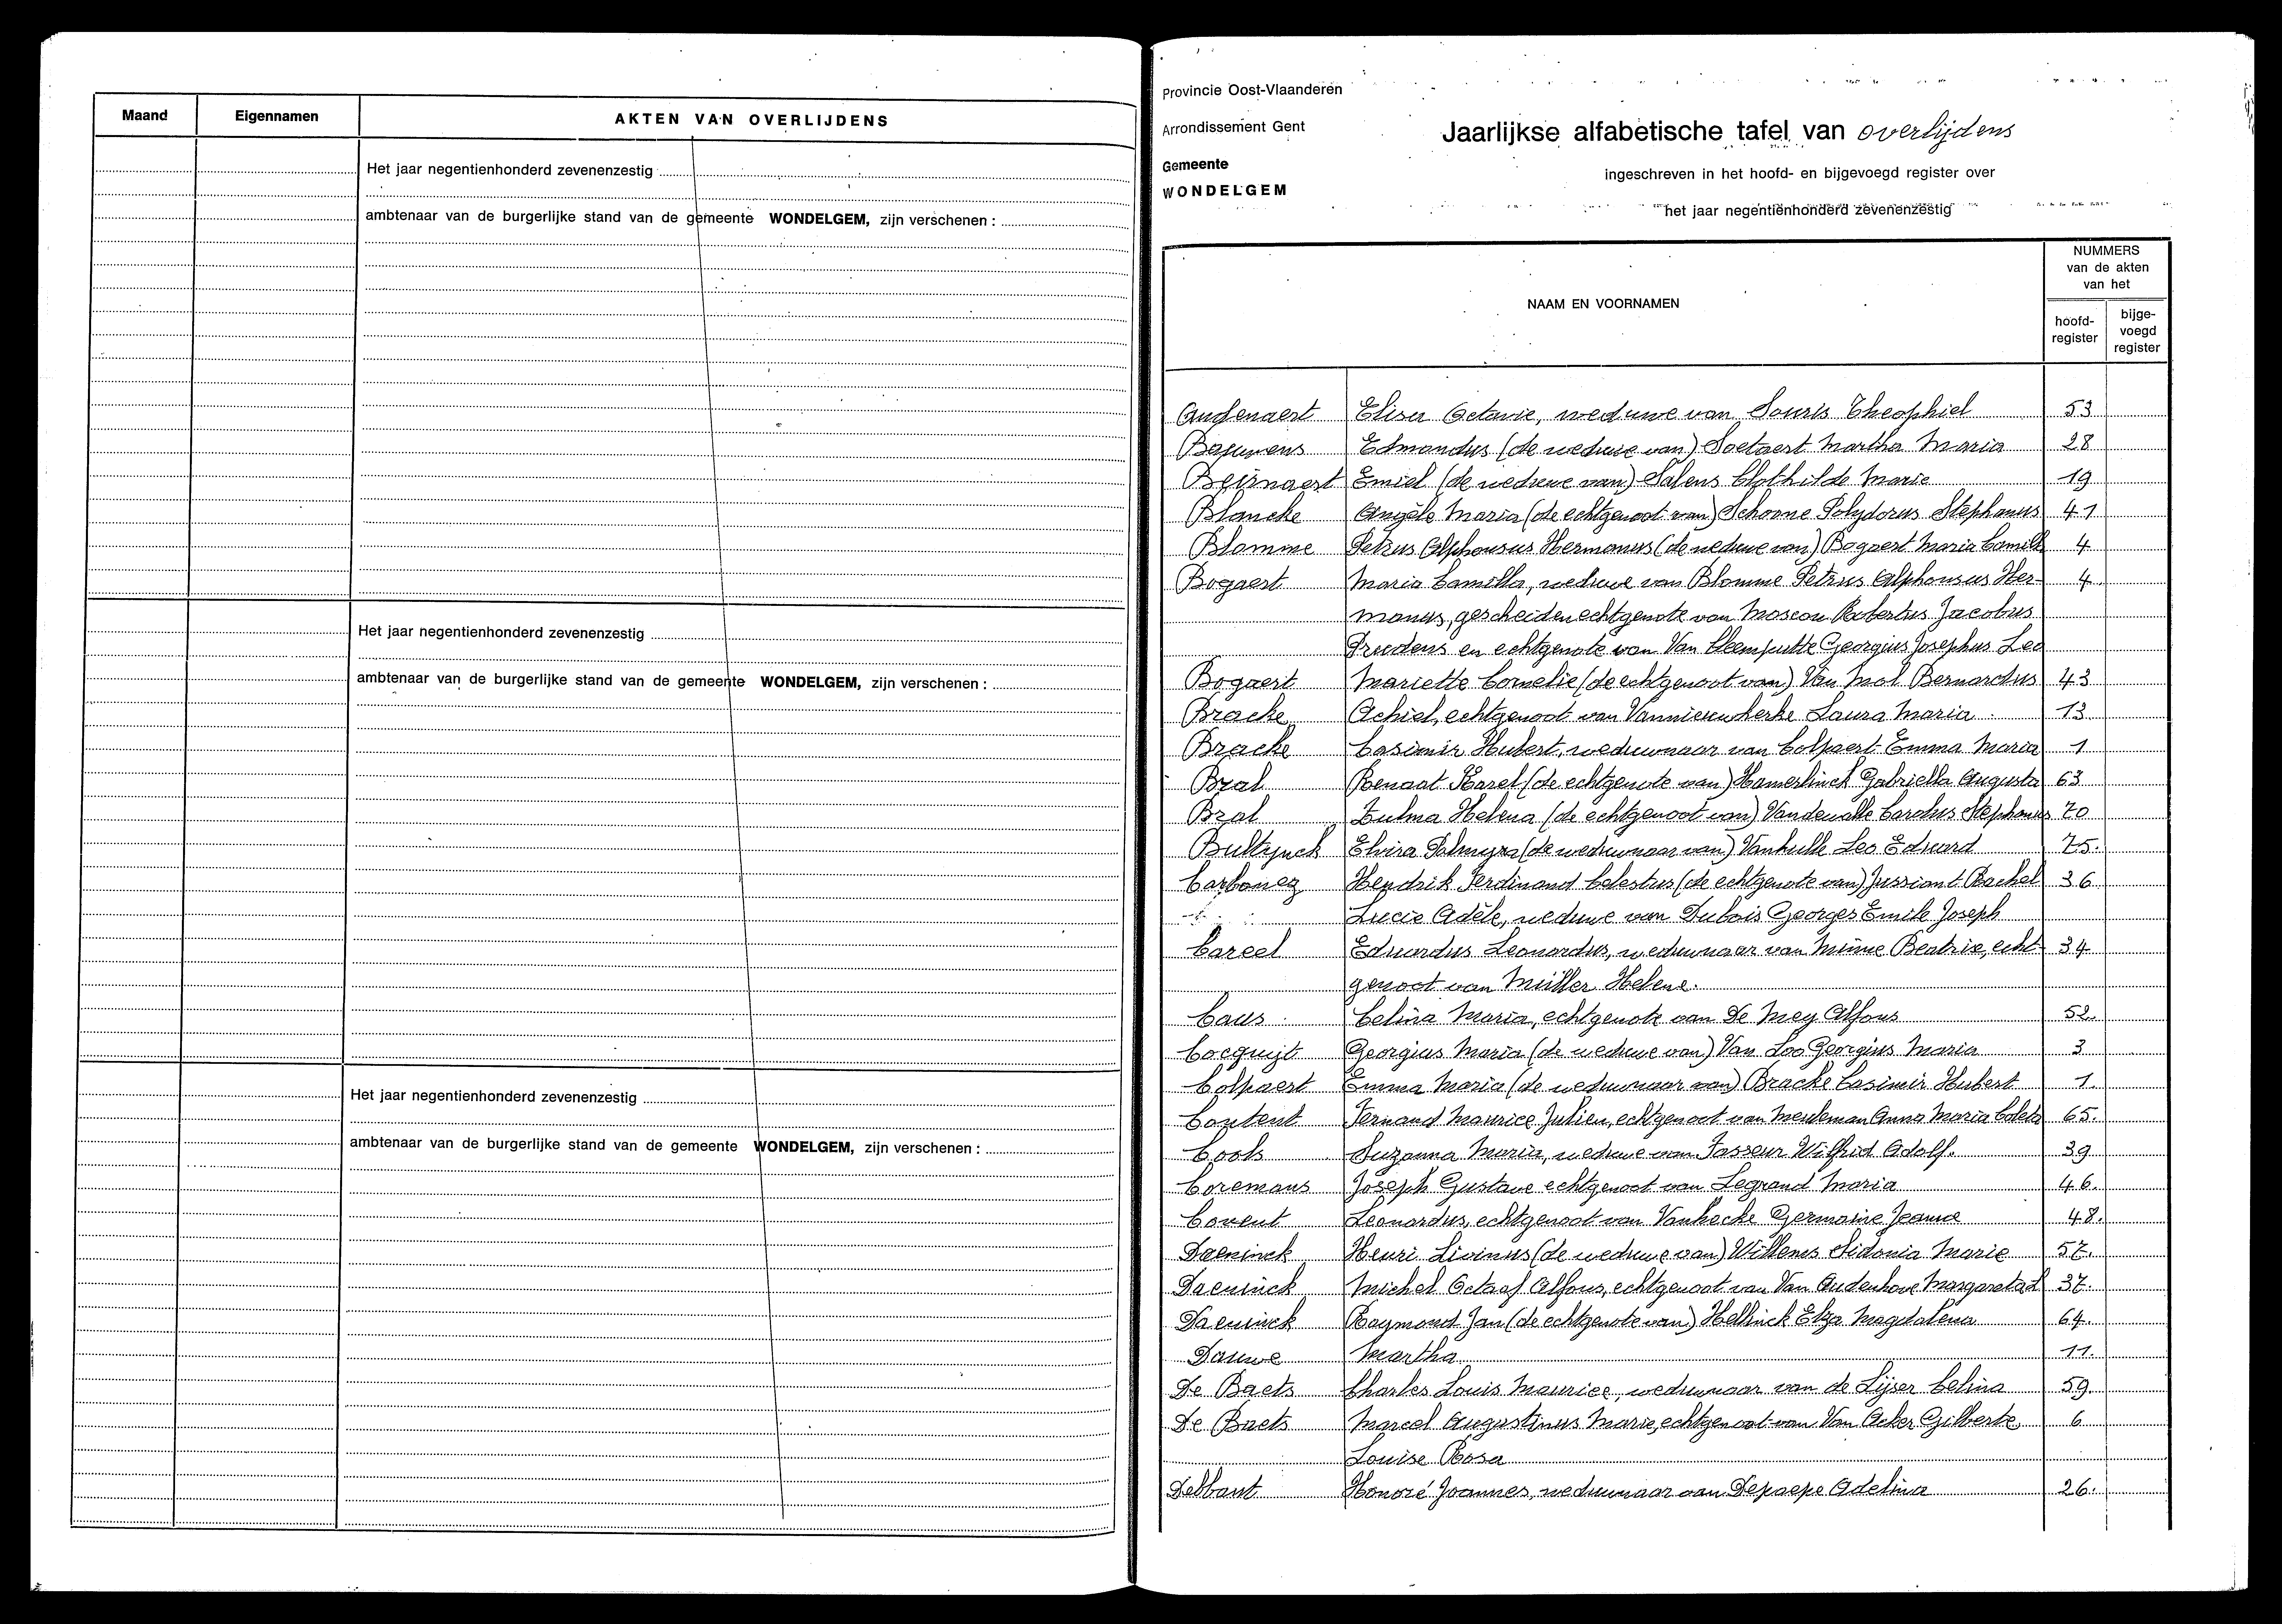 Maand Eigennamen AKTEN VAN OVERLIJDENS
Het jaar negentienhonderd zevenenzestig
ambtenaar van de burgerlijke stand van de gemeente WONDELGEM, zijn verschenen :
Het jaar negentienhonderd zevenenzestig
ambtenaar van de burgerlijke stand van de gemeente WONDELGEM, zijn verschenen :
Het jaar negentienhonderd zevenenzestig
ambtenaar van de burgerlijke stand van de gemeente WONDELGEM, zijn verschenen :
Provincie Oost-Vlaanderen
Arrondissement Gent
Gemeente
WONDELGEM
Jaarlijkse alfabetische tafel van overlijdens
ingeschreven in het hoofd- en bijgevoegd register over
het jaar negentienhonderd zevenenzestig
NAAM EN VOORNAMEN
NUMMERS
van de akten
van het
hoofd-
register
bijge-
voegd
register
Audenaert Elisa Octavie, weduwe van Souris Theophiel 53
Bauwens Edmondus (de weduwe van) Soetaert Martha Maria 28
Beirnaert Emiel (de weduwe van) Salens Clothilde Marie 19
Blancke Angèle Maria (de echtgenoot van) Schoone Polydorus Stephanus 41
Blomme Petrus Alphonsus Hermanus (de weduwe van) Bogaert Maria Camilla 4
Bogaert Maria Camilla, weduwe van Blomme Petrus Alphonsus Her- 4
manus, gescheiden echtgenote van Moscou Robertus Jacobus
Prudens en echtgenote van Van Cleemputte Georgius Josephus Leo
Bogaert Mariette Cornelie (de echtgenoot van) Van Mol Bernardus 43
Bracke Achiel, echtgenoot van Vannieuwkerke Laura Maria 13
Bracke Casimir Hubert, weduwnaar van Colpaert Emma Maria 1
Bral Renaat Karel (de echtgenote van) Hamerlinck Gabriella Augusta 63
Bral Zulma Helena (de echtgenoot van) Vandewalle Carolus Stephanus 70
Bultynck Elvira Palmyra (de weduwnaar van) Vanhulle Leo Eduard 75.
Carbonez Hendrik Ferdinand Celestus (de echtgenote van) Jussiant Rachel 36
Lucie Adèle, weduwe van Dubois Georges Emile Joseph
Careel Eduardus Leonardus, weduwnaar van Minne Beatrix, echt- 34
genoot van Müller Helene.
Caus Celina Maria, echtgenote van De Mey Alfons 52.
Cocquyt Georgius Maria (de weduwe van) Van Loo Georgius Maria 3
Colpaert Emma Maria (de weduwnaar van) Bracke Casimir Hubert 1.
Content Fernand Maurice Julien, echtgenoot van Meuleman Anna Maria Coleta 65.
Cools Suzanna Maria, weduwe van Tasseur Wilfrid Adolf. 39
Coremans Joseph Gustave echtgenoot van Legrand Maria 46.
Covent Leonardus, echtgenoot van Vanhecke Germaine Jeanne 48.
Daeninck Henri Livinus (de weduwe van) Willems Sidonia Marie 57.
Daeninck Michel Octaaf Alfons, echtgenoot van Van Oudenhove Margareta L 37.
Daeninck Raymond Jan (de echtgenote van) Hellinck Elza Magdalena 64.
Dauwe Martha 11.
De Baets Charles Louis Maurice, weduwnaar van de Lijser Celina 59.
De Baets Marcel Augustinus Marie, echtgenoot van Van Acker Gilberte 6
Louise Rosa
Debbaut Honoré Joannes, weduwnaar van Depaepe Adelina 26.